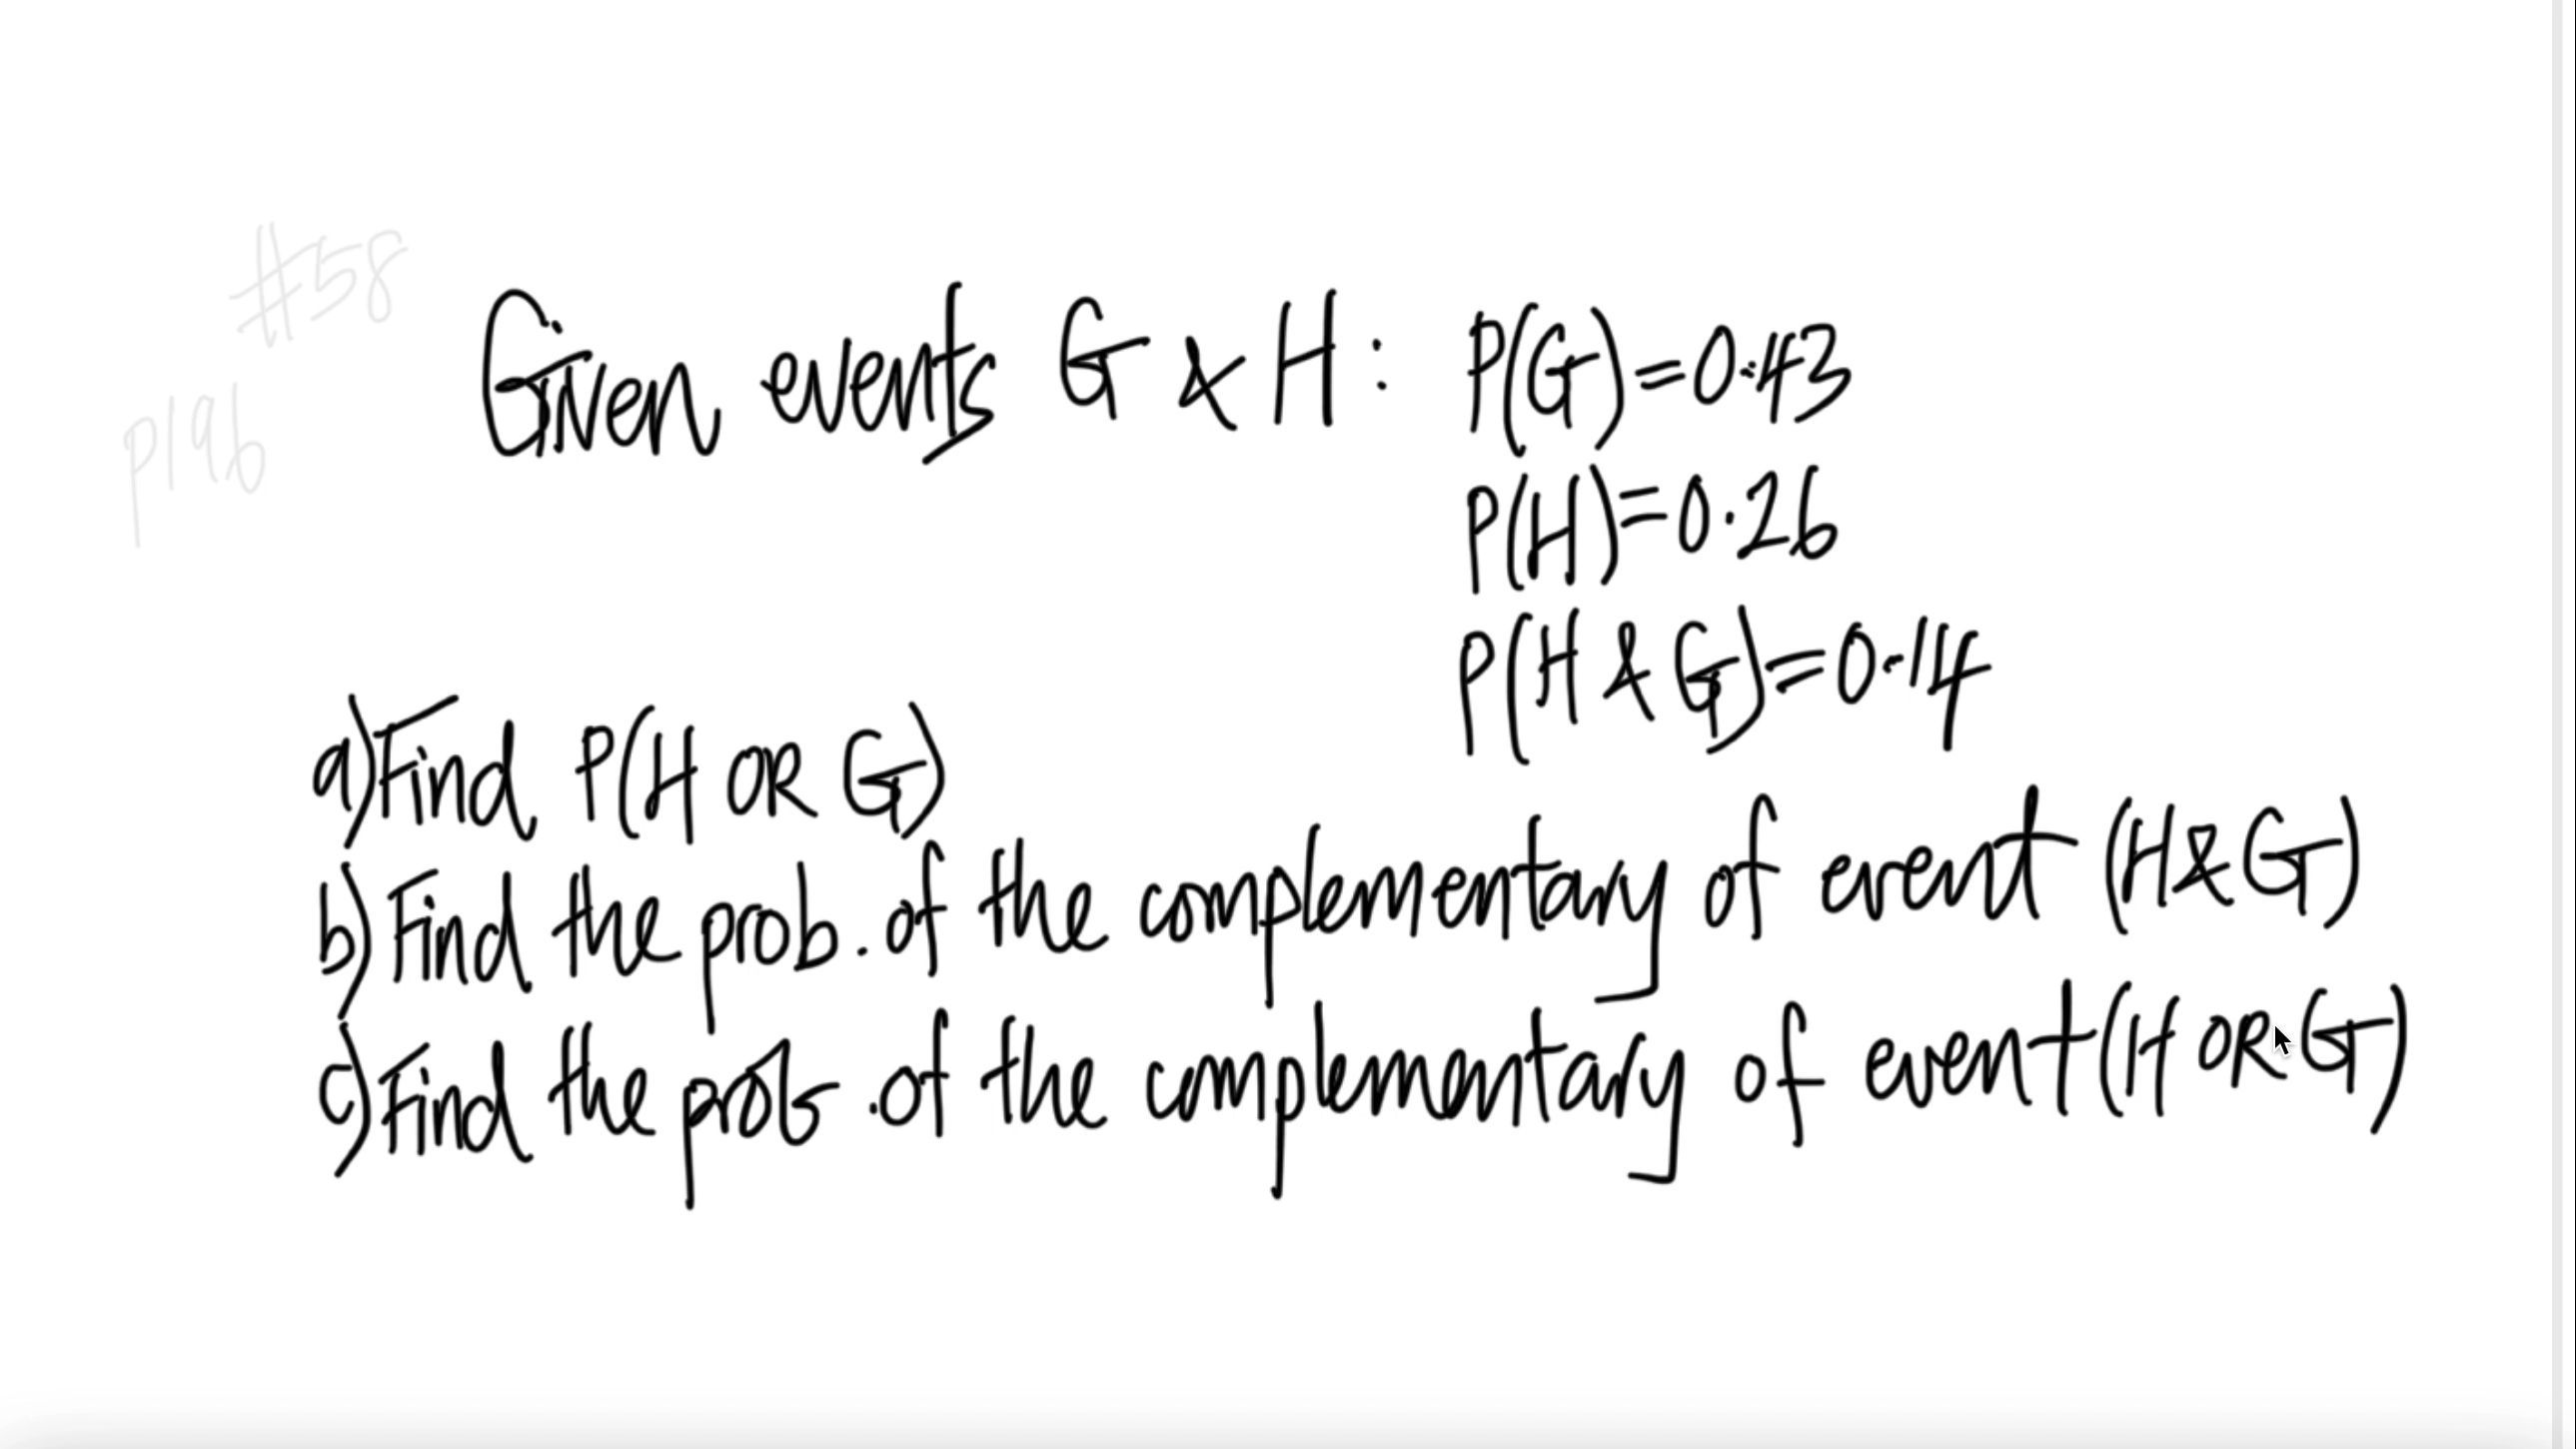 #58
p196
Given events G & H: P(G)=0.43
P(H)=0.26
P(H & G)=0.14
a) Find P(H OR G)
b) Find the prob. of the complementary of event (H&G)
c) Find the prob. of the complementary of event (H OR G)